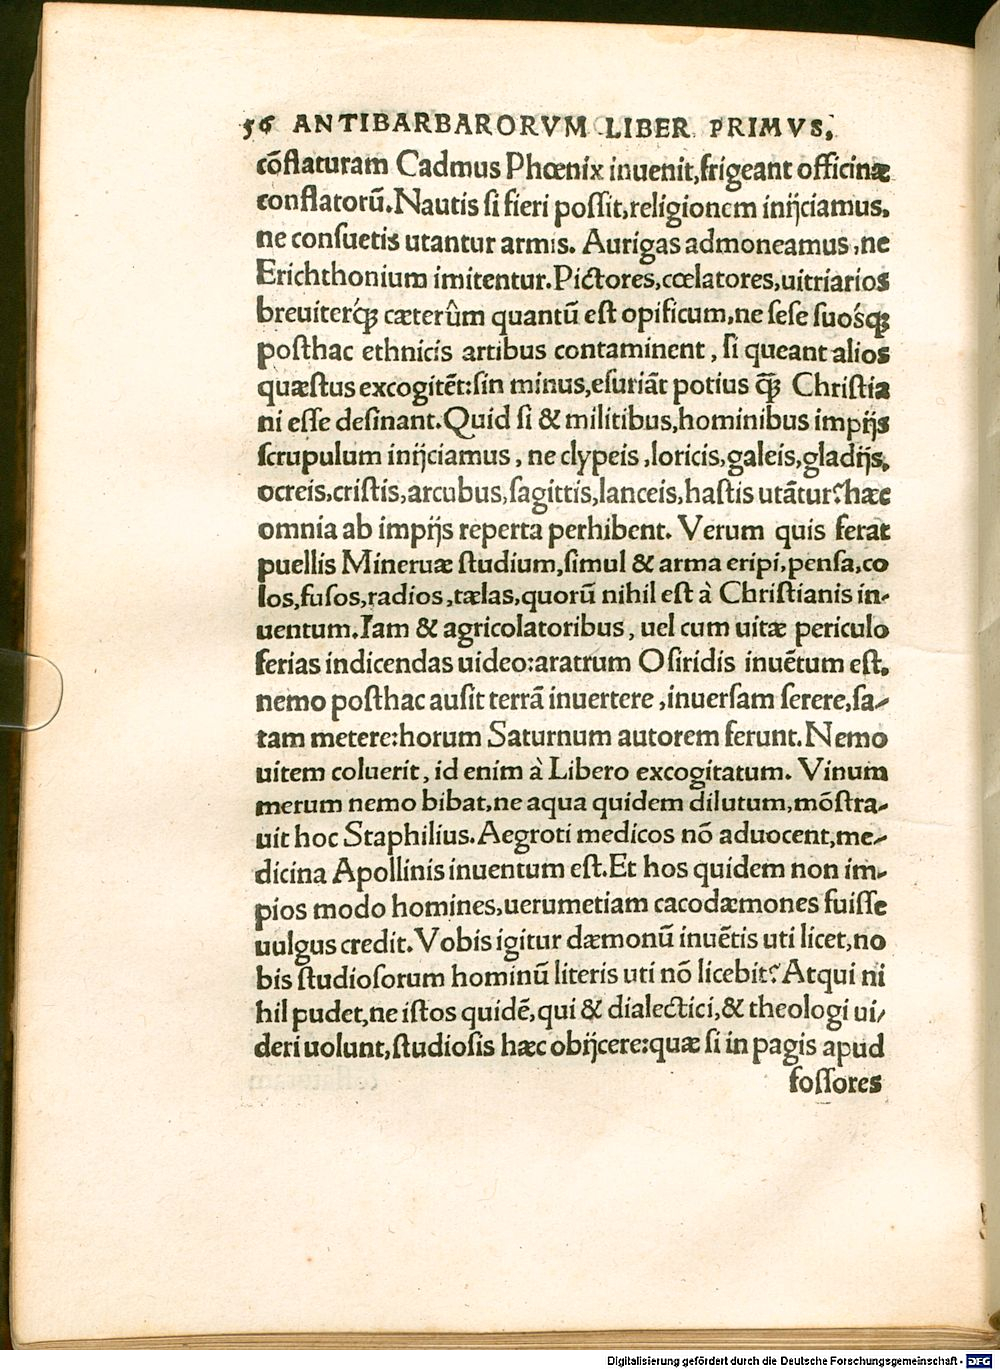 56 ANTIBARBARORVM LIBER PRIMVS,
cõflaturam Cadmus Phœnix inuenit,frigeant officinæ
conflatorũ.Nautis ſi fieri poſſit,religionem inijciamus,
ne conſuetis utantur armis. Aurigas admoneamus,ne
Erichthonium imitentur.Pictores,cœlatores,uitriarios
breuiterq́ꝫ cæterûm quantũ eſt opificum,ne ſeſe ſuosq́ꝫ
poſthac ethnicis artibus contaminent, ſi queant alios
quæſtus excogitẽt:ſin minus,eſuriãt potius q̃ꝫ Chriſtia
ni eſſe deſinant.Quid ſi & militibus,hominibus impijs
ſcrupulum inijciamus, ne clypeis,loricis,galeis,gladijs,
ocreis,criſtis,arcubus,ſagittis,lanceis,haſtis utãtur?hæc
omnia ab impijs reperta perhibent. Verum quis ferat
puellis Mineruæ ſtudium,ſimul & arma eripi,penſa,co
los,fuſos,radios,tælas,quorũ nihil eſt à Chriſtianis in-
uentum.Iam & agricolatoribus, uel cum uitæ periculo
ferias indicendas uideo:aratrum Oſiridis inuẽtum eſt,
nemo poſthac auſit terrã inuertere,inuerſam ſerere,ſa-
tam metere:horum Saturnum autorem ferunt.Nemo
uitem coluerit, id enim à Libero excogitatum. Vinum
merum nemo bibat,ne aqua quidem dilutum,mõſtra-
uit hoc Staphilius.Aegroti medicos nõ aduocent,me-
dicina Apollinis inuentum eſt.Et hos quidem non im-
pios modo homines,uerumetiam cacodæmones fuiſſe
uulgus credit.Vobis igitur dæmonũ inuẽtis uti licet,no
bis ſtudioſorum hominũ literis uti nõ licebit?Atqui ni
hil pudet,ne iſtos quidẽ,qui & dialectici,& theologi ui-
deri uolunt,ſtudioſis hæc obijcere:quæ ſi in pagis apud
foſſores
Digitalisierung gefördert durch die Deutsche Forschungsgemeinschaft - DFG